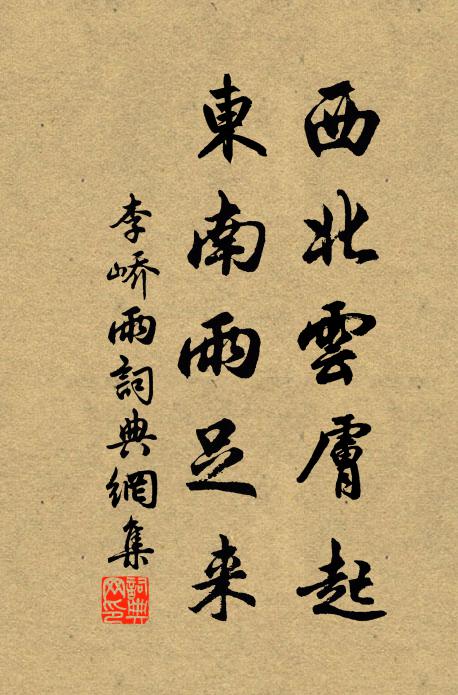 西北雲膚起
東南雨足来
李嶠雨詞典網集
詞典網印